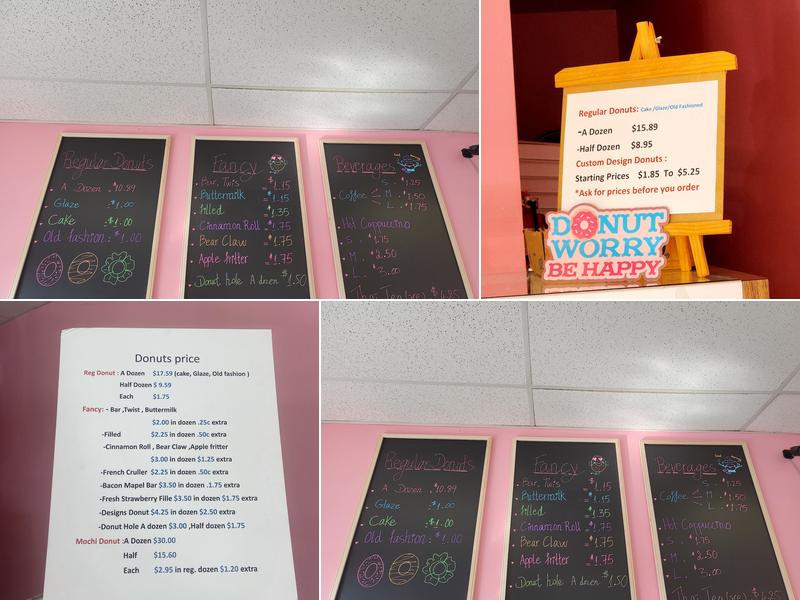 Regular Donuts
A Dozen : $10.89
Glaze : $1.00
Cake : $1.00
Old fashion : $1.00
Fancy
Bar, Twis = $1.15
Buttermilk = $1.15
filled = $1.35
Cinnamon Roll = $1.75
Bear Claw = $1.75
Apple fritter = $1.75
Donut hole A dozen $1.50
Beverages
S . $1.25
Coffee M . $1.50
L . $1.75
Hot Cappuccino
S . $1.75
M . $2.50
L . $3.00
Regular Donuts: Cake /Glaze/Old Fashioned
-A Dozen $15.89
-Half Dozen $8.95
Custom Design Donuts :
Starting Prices $1.85 To $5.25
*Ask for prices before you order
DONUT
WORRY
BE HAPPY
Donuts price
Reg Donut : A Dozen $17.59 (cake, Glaze, Old fashion )
Half Dozen $ 9.59
Each $1.75
Fancy: - Bar ,Twist , Buttermilk
$2.00 in dozen .25c extra
-Filled $2.25 in dozen .50c extra
-Cinnamon Roll , Bear Claw ,Apple fritter
$3.00 in dozen $1.25 extra
-French Cruller $2.25 in dozen .50c extra
-Bacon Mapel Bar $3.50 in dozen .1.75 extra
-Fresh Strawberry Fille $3.50 in dozen $1.75 extra
-Designs Donut $4.25 in dozen $2.50 extra
-Donut Hole A dozen $3.00 ,Half dozen $1.75
Mochi Donut :A Dozen $30.00
Half $15.60
Each $2.95 in reg. dozen $1.20 extra
Regular Donuts
A Dozen : $10.89
Glaze : $1.00
Cake : $1.00
Old fashion : $1.00
Fancy
Bar, Twis = $1.15
Buttermilk = $1.15
filled = $1.35
Cinnamon Roll = $1.75
Bear Claw = $1.75
Apple fritter = $1.75
Donut hole A dozen $1.50
Beverages
S . $1.25
Coffee M . $1.50
L . $1.75
Hot Cappuccino
S . $1.75
M . $2.50
L . $3.00